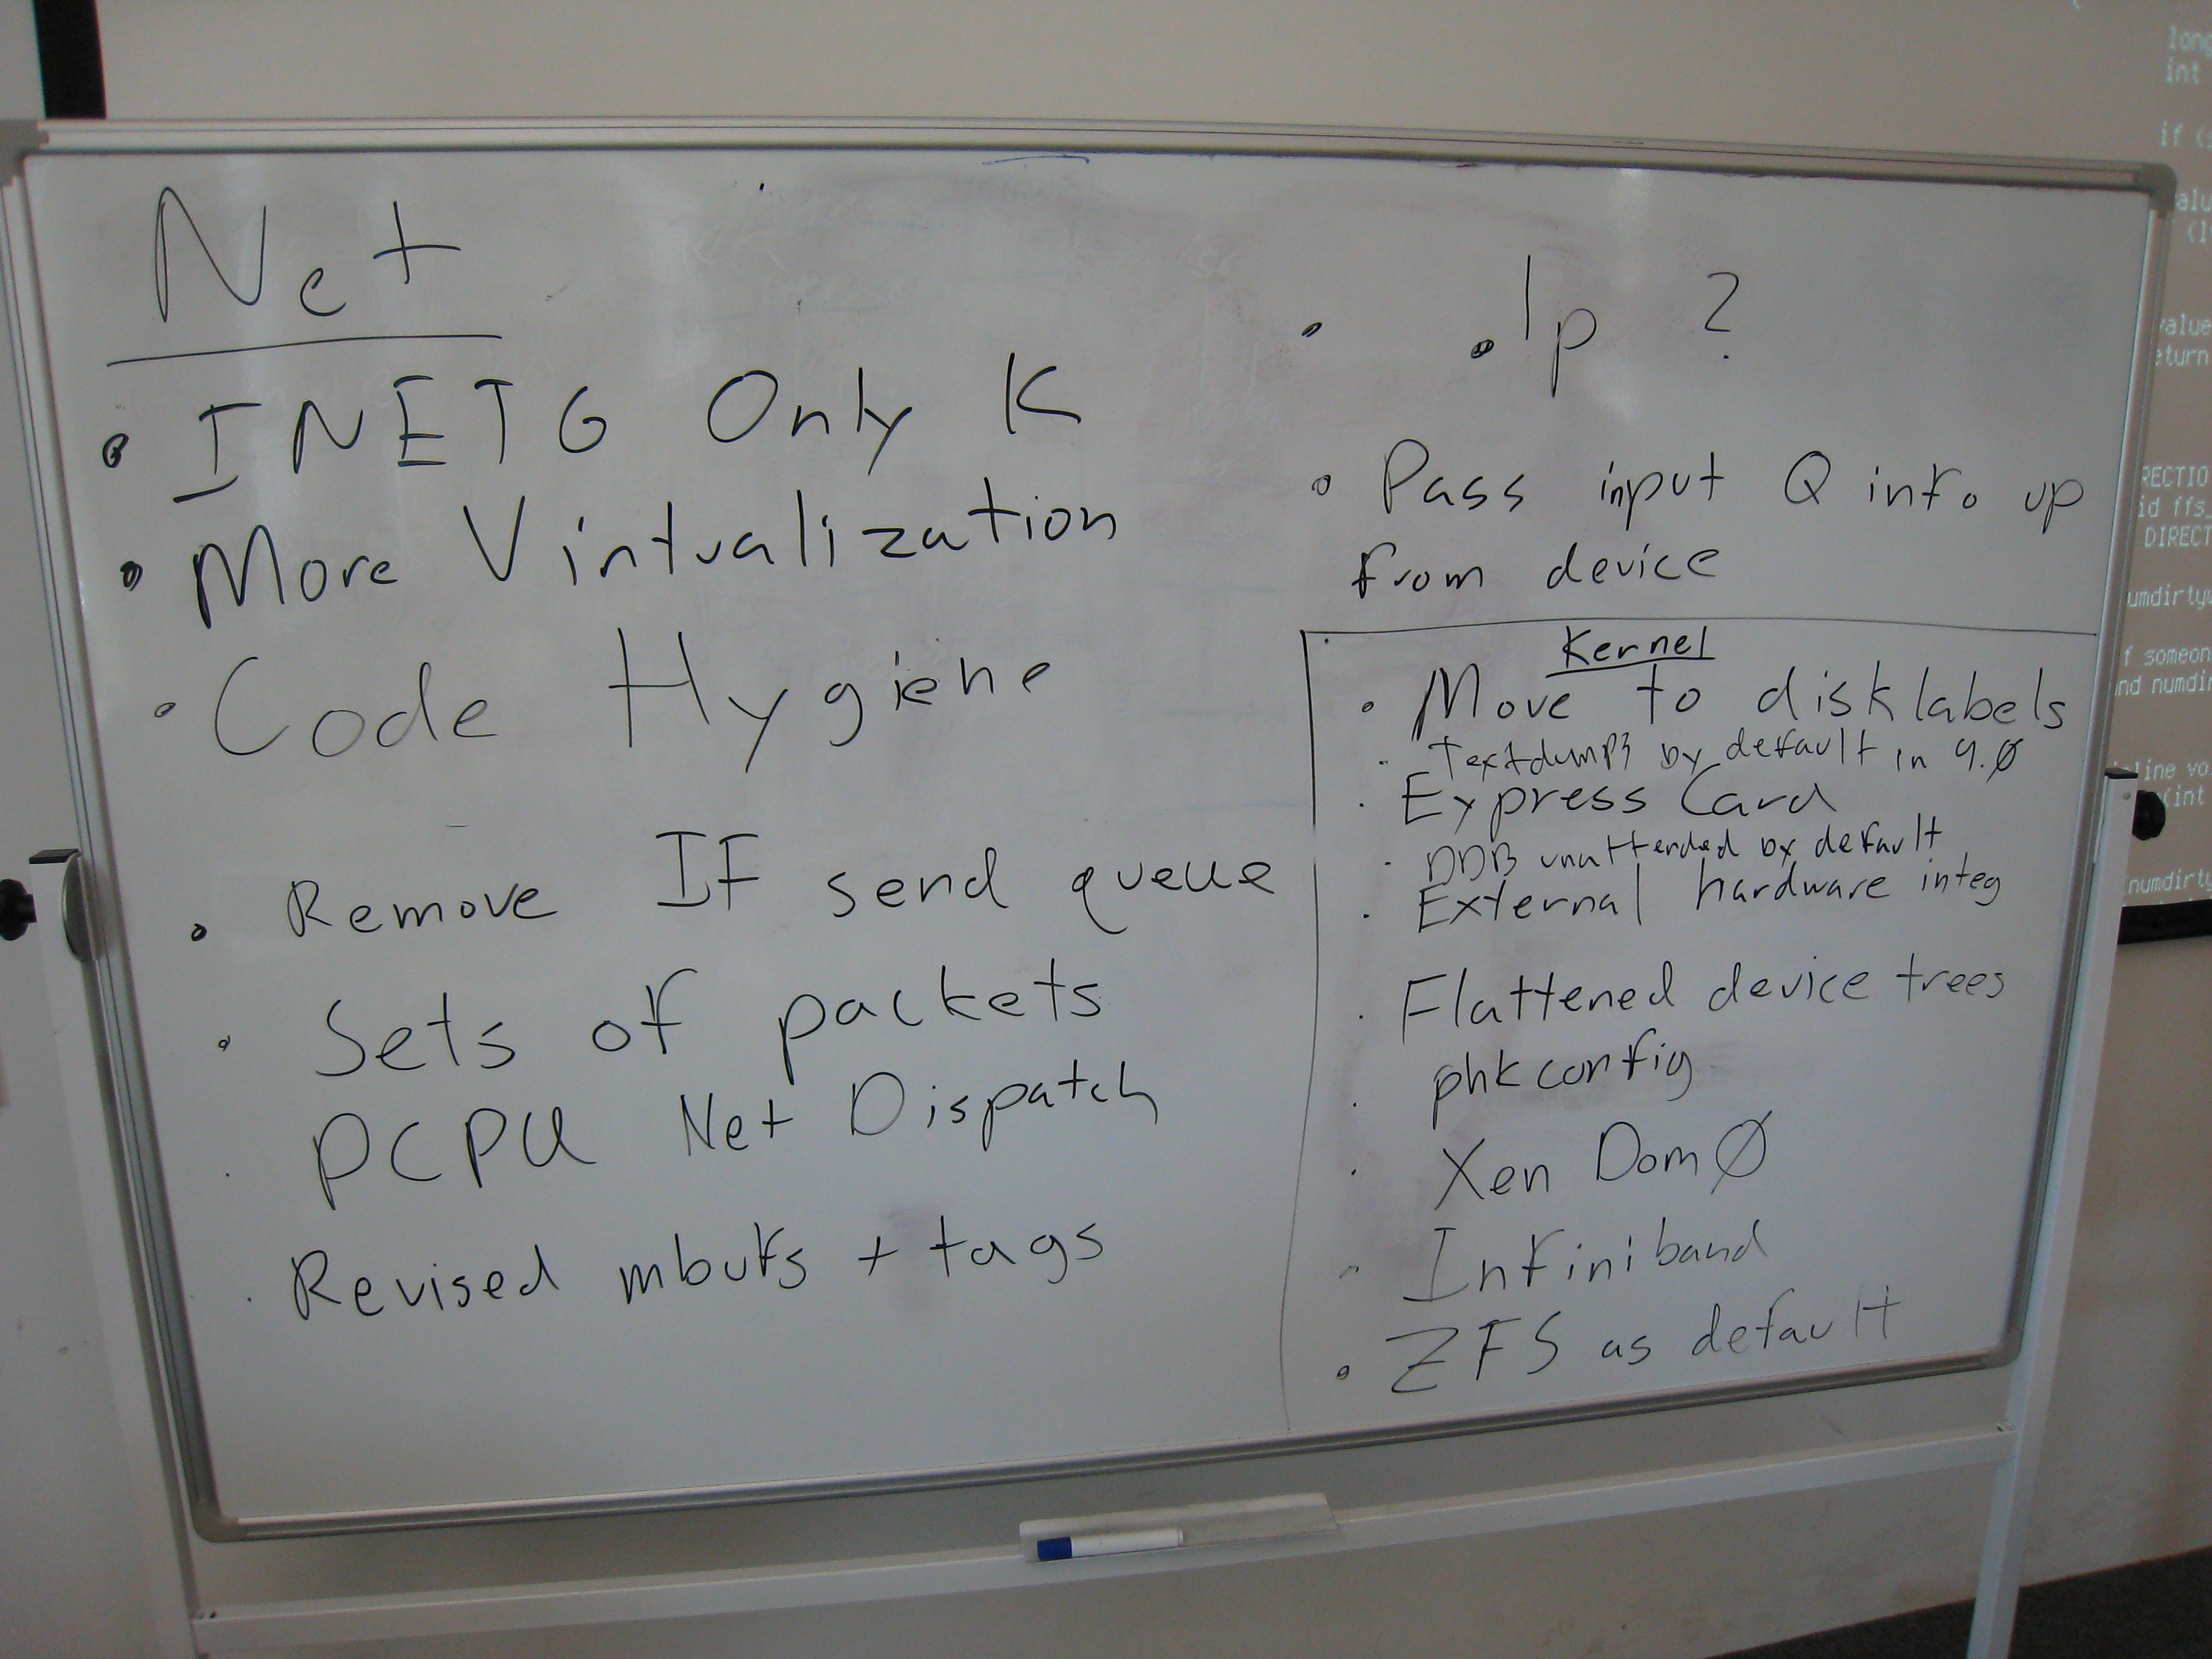 Net
• INET6 Only K
• More Virtualization
• Code Hygiene
• Remove IF send queue
• Sets of packets
· PCPU Net Dispatch
· Revised mbufs + tags
• .1p ?
• Pass input Q info up
from device
Kernel
• Move to disklabels
· Textdumps by default in 9.0
· Express Card
· DDB unattended by default
· External hardware integ
· Flattened device trees
· phkconfig
· Xen Dom0
· Infiniband
• ZFS as default
long
int
if (
value
return
DIRECT
numdirty